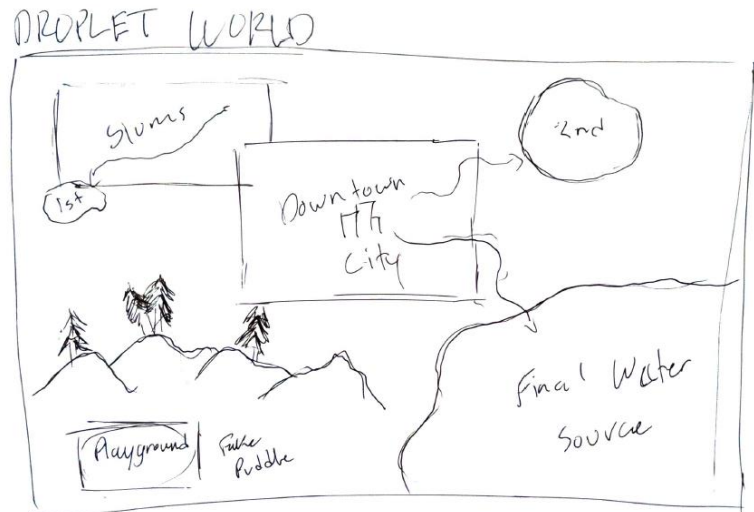 DROPLET WORLD
Slums
1st
2nd
Downtown
City
Final Water
Source
Playground
Fake
Puddle